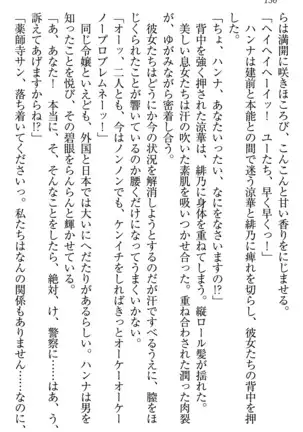 150
らは満開に咲きほころび、こんこんと甘い香りをにじませる。
「ヘイヘイヘーイッ！　ユーたち、早く早くっ！」
ハンナは建前と本能との間で迷う涼華と緋乃に痺れを切らし、彼女たちの背中を押す。
「ちょ、ハンナ、あなたいったい、なにをなさるの!?」
背中を強く押された涼華は、緋乃に身体を重ねてしまう。縦ロール髪が揺れた。
美しい息女たちは汗の吹いた素肌を吸いつかせ合う。重ね合わされた潤った肉裂が、ゆがみながら密着し合う。
彼女たちはどうにか今の状況を解消しようとするのだが汗ですべるうえに、膣をほじくられたことが響いているのか腰にだけになってしまう。
「オーッ、二人とも、今はノンノンで、ケンイチをしればきっとオーケーオーケー、ノープロブレムネトーッ！」
同じ令嬢といえども、外国と日本では大いにへだたりがあるらしい。ハンナは男を知ったことを悦び、その碧眼をらんらんと輝かせた。
「あ、あなた！　本当に、そ、そんなことをしたら、絶対、け、警察に……はあ、う、訴えてあげますからね!?」
「薬師寺サン、落ち着いてくださいっ。私たちはなんの関係もありません……なのに、